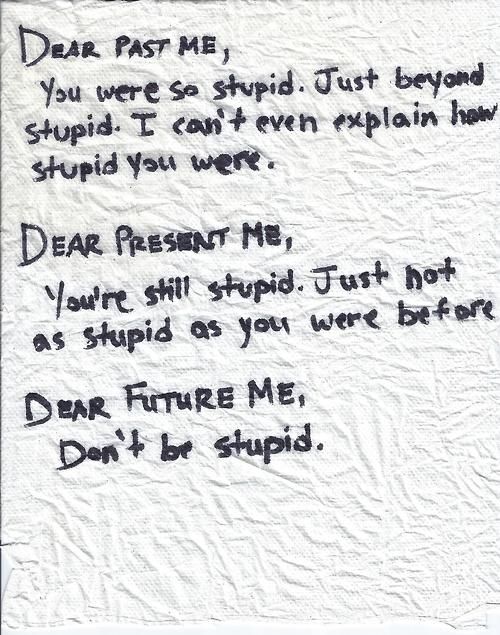 DEAR PAST ME,
You were so stupid. Just beyond
stupid. I can't even explain how
stupid you were.
DEAR PRESENT ME,
You're still stupid. Just not
as stupid as you were before
DEAR FUTURE ME,
Don't be stupid.